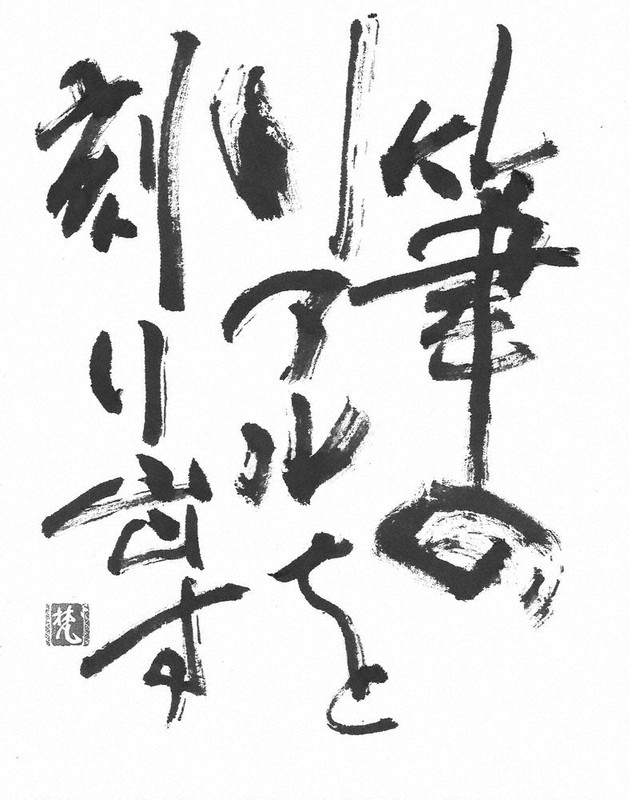 筆の
リアルを
刻り出す
梵